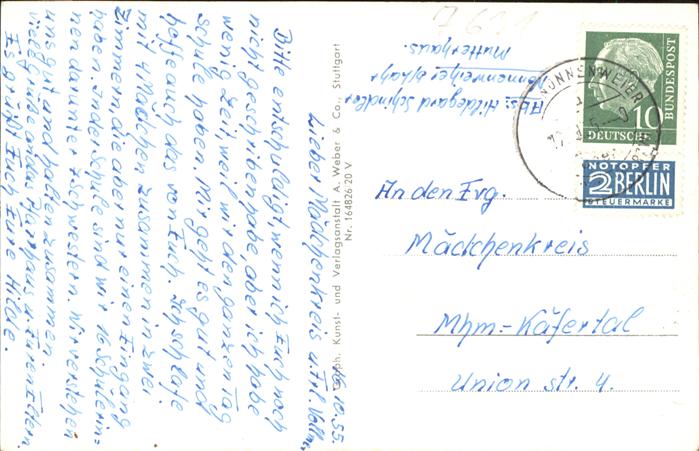 16.10.55.
Lieber Mädchenkreis u. Frl. Vollm.
Bitte entschuldigt, wenn ich Euch noch
nicht geschrieben habe, aber ich habe
wenig Zeit, weil wir den ganzen Tag
Schule haben. Mir geht es gut und
hoffe auch das von Euch. Ich schlafe
mit 4 Mädchen zusammen in zwei
Zimmern, die aber nur einen Eingang
haben. In der Schule sind wir 16 Schülerin=
nen darunter 2 Schwestern. Wir verstehen
uns gut und halten zusammen.
Viele Grüße an das Pfarrhaus u. Eure Eltern.
Es grüßt Euch Eure Hilde.
Graph. Kunst- und Verlagsanstalt A. Weber & Co., Stuttgart
Nr. 164826/20 V
Abs: Hildegard Schindler
Nonnenweier b/Lahr
Mutterhaus.
NONNENWEIER
DEUTSCHE BUNDESPOST
10
NOTOPFER
2 BERLIN
STEUERMARKE
An den Evg.
Mädchenkreis
Mhm.-Käfertal
Union str. 4.